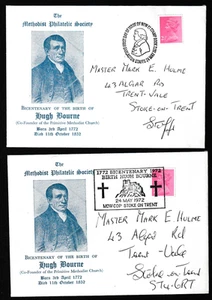 The
Methodist Philatelic Society
BICENTENARY OF THE BIRTH OF
Hugh Bourne
(Co-Founder of the Primitive Methodist Church)
Born 3rd April 1772
Died 11th October 1852
MASTER MARK E. HULME
43 ALGAR RD
TRENT-VALE
STOKE-ON-TRENT
STAFFS
The
Methodist Philatelic Society
BICENTENARY OF THE BIRTH OF
Hugh Bourne
(Co-Founder of the Primitive Methodist Church)
Born 3rd April 1772
Died 11th October 1852
1772 BICENTENARY 1972
BIRTH HUGH BOURNE
24 MAY 1972
MOWCOP STOKE ON TRENT
MASTER MARK E. HULME
43 ALGAR RD
TRENT-VALE
Stoke on Trent